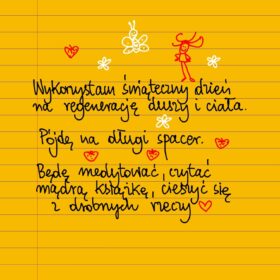 Wykorzystam świąteczny dzień
na regenerację duszy i ciała.
Pójdę na długi spacer.
Będę medytować, czytać
mądrą książkę, cieszyć się
z drobnych rzeczy